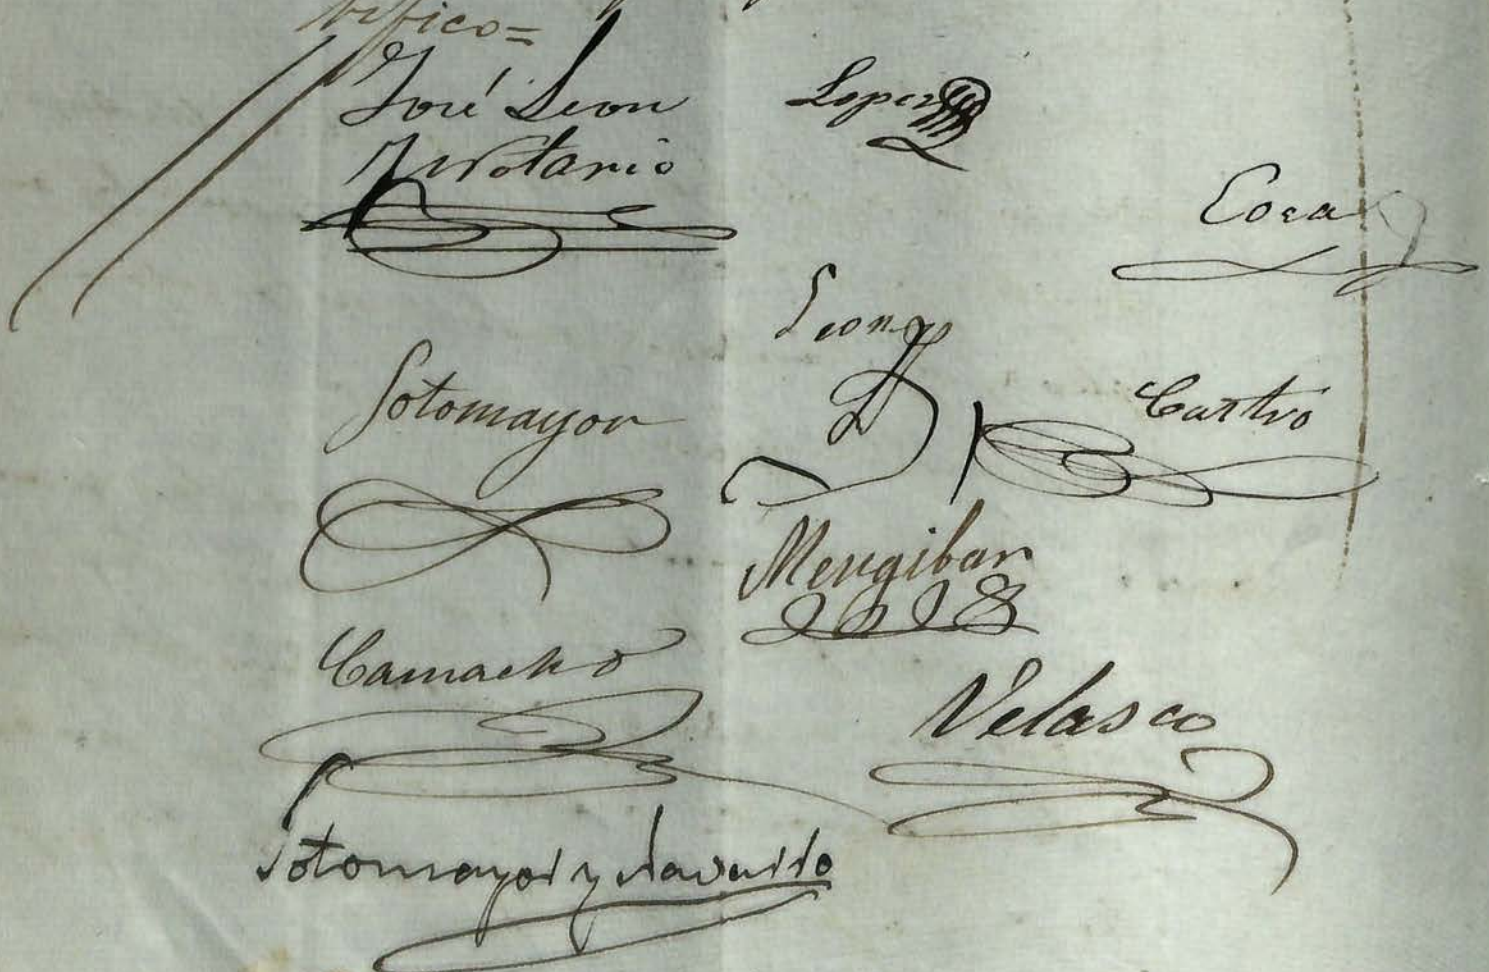 tifico=
José Leon
Notario
Lopez
Coca
Leon
Sotomayor
Castro
Mengibar
Camacho
Velasco
Sotomayor y Navarro